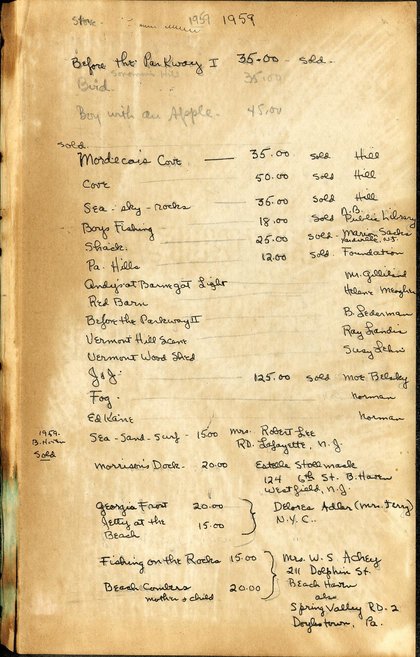 Store - 1959 1959
Before the Parkway I 35.00 - Sold.
Bird 35.00
Boy with an Apple. 45.00
Sold.
Mordecais Cove — 35.00 Sold Hill
Cove 50.00 Sold Hill
Sea - sky - rocks 35.00 Sold Hill
Boys Fishing 18.00 Sold N.B. Public Library
Shack. 25.00 Sold. Mario
Pa. Hills 12.00 Sold. Foundation
Andys at Barnegat Light Mr. Gilliland
Red Barn Helene
Before the Parkway II B. Lederman
Vermont Hill Scene Ray
Vermont Wood Shed Susy
J & J. 125.00 Sold Moe Belsky
Fog. Norman
Ed Kane Norman
1959. B. Haven Sold
Sea - Sand - Surf - 15.00 Mrs. Robert Lee
RD. Lafayette, N.J.
Morrison's Dock - 20.00 Estelle
124 6th St. B. Haven
Westfield, N.J.
Georgia Frost 20.00 Delores Adler (Mr. Jerry)
Jetty at the Beach 15.00 N.Y.C..
Fishing on the Rocks 15.00 Mrs. W. S. Achey
211 Dolphin St.
Beach Combers 20.00 Beach Haven
mother & child also
Spring Valley RD. 2
Doylestown, Pa.